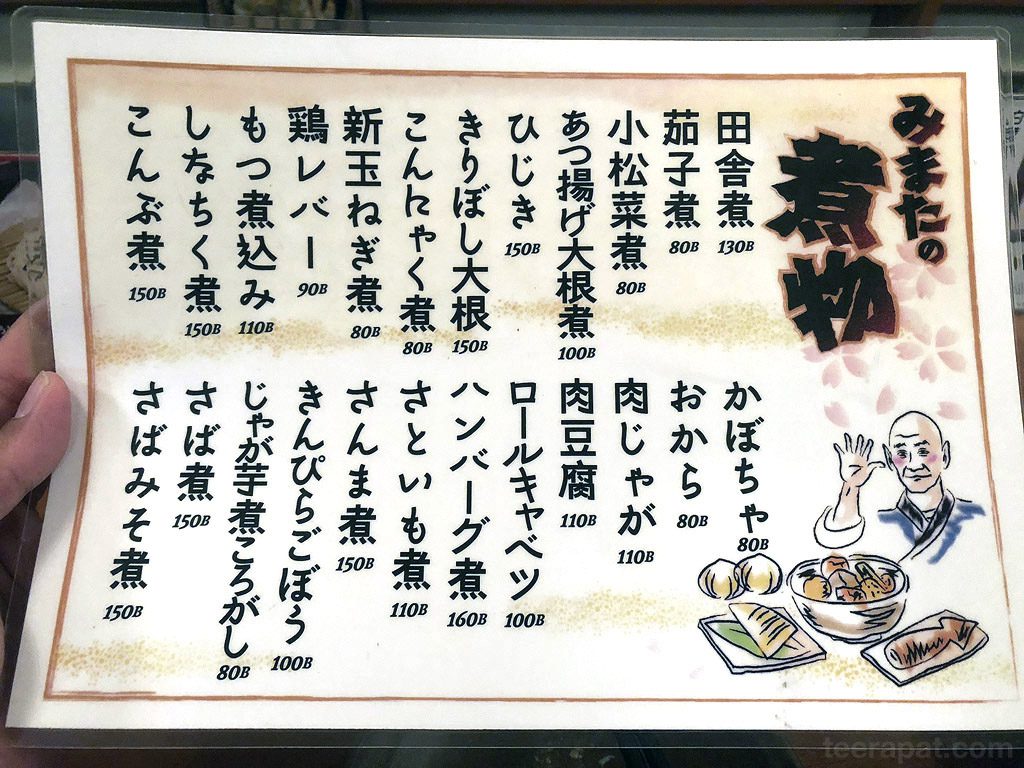 みまたの
煮物
田舎煮 130B
茄子煮 80B
小松菜煮 80B
あつ揚げ大根煮 100B
ひじき 150B
きりぼし大根 150B
こんにゃく煮 80B
新玉ねぎ煮 80B
鶏レバー 90B
もつ煮込み 110B
しなちく煮 150B
こんぶ煮 150B
かぼちゃ 80B
おから 80B
肉じゃが 110B
肉豆腐 110B
ロールキャベツ 100B
ハンバーグ煮 160B
さといも煮 110B
さんま煮 150B
きんぴらごぼう 100B
じゃが芋煮ころがし 80B
さば煮 150B
さばみそ煮 150B
teerapat.com